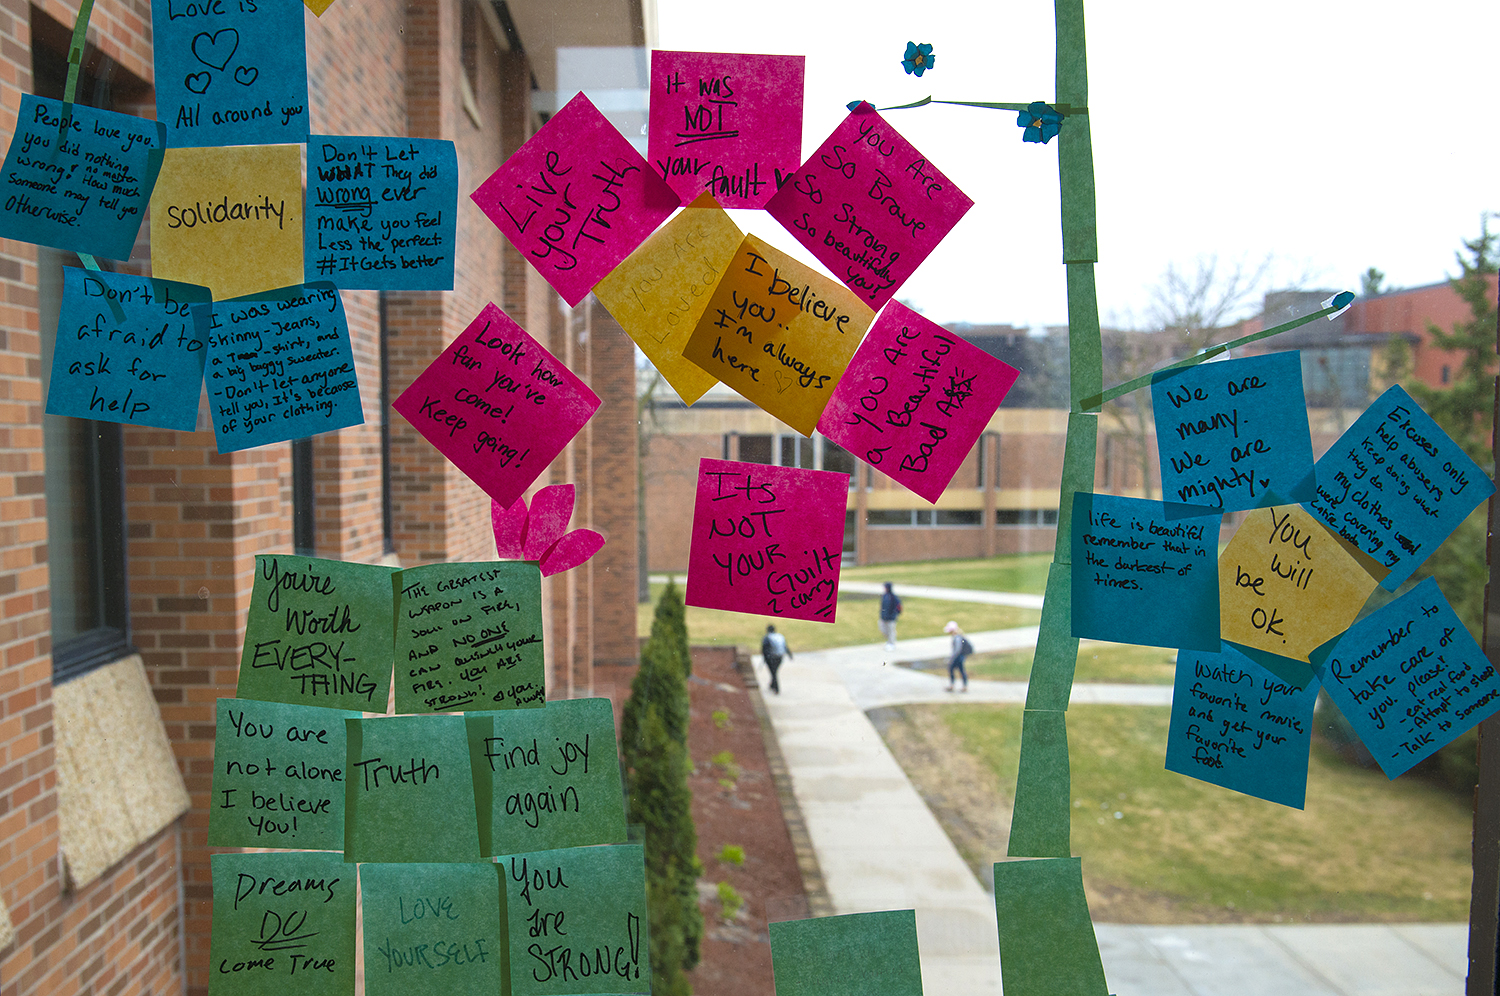 Love is
All around you
People love you.
you did nothing
wrong! no matter
How much
Someone may tell you
otherwise.
Solidarity.
Don't Let
WHAT They did
wrong ever
make you feel
Less the perfect.
#ItGets better
Don't be
afraid to
ask for
help
I was wearing
skinny-jeans,
a T-shirt, and
a big baggy sweater.
- Don't let anyone
tell you, It's because
of your clothing.
Live
your
Truth
It was
NOT
your fault
You Are
So Brave
So Strong
So beautifully
You!
You Are
Loved
I believe
you..
I'm always
here
You Are
a Beautiful
Bad Ass
Look how
far you've
come!
Keep going!
Its
NOT
YOUR
Guilt
2 carry
!!
You're
Worth
EVERY-
THING
THE GREATEST
WEAPON IS A
SOUL ON FIRE,
AND NO ONE
CAN QUENCH YOUR
FIRE. YOU ARE
STRONG!
You are
not alone
I believe
you!
Truth
Find joy
again
Dreams
DO
come True
LOVE
YOURSELF
You
are
STRONG!
We are
many.
We are
mighty
Excuses only
help abusers
keep doing what
they do.
my clothes
were covering my
entire body
life is beautiful
remember that in
the darkest of
times.
You
will
be
OK.
Watch your
favorite movie,
and get your
favorite
food.
Remember to
take care of
you, please!
- eat real food
- Attempt to sleep
- Talk to someone